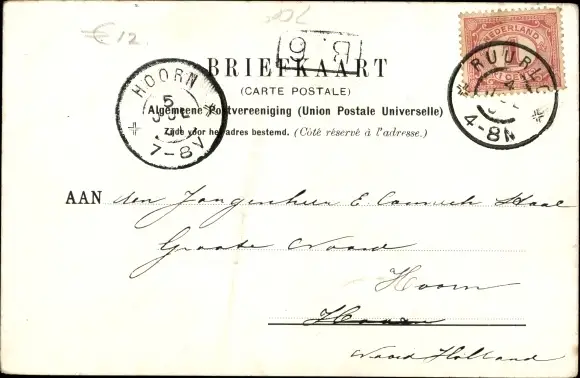 € 12.
B.
6
NEDERLAND
BRIEFKAART
(CARTE POSTALE)
Algemeene Postvereeniging (Union Postale Universelle)
Zijde voor het adres bestemd. (Côté réservé à l'adresse.)
HOORN
5
7-8V
RUURL
4
4-8N
AAN den Jongenheer E
Groote Noord
Hoorn
Hoorn
Noord Holland